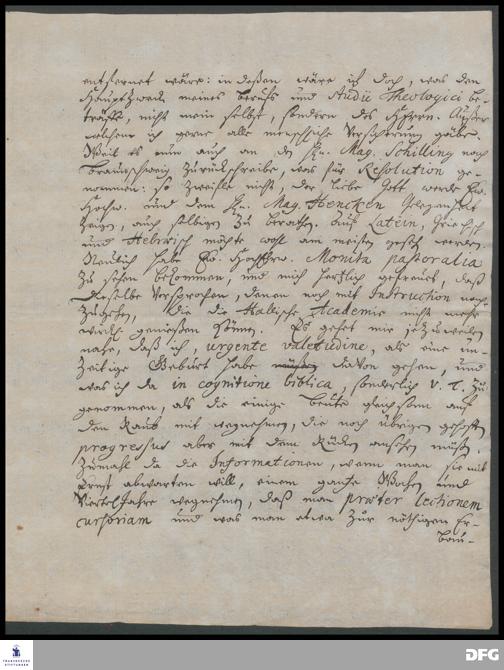 entfernet wäre: in deßen wäre ich doch, was den
Hauptzweck meines Berufs und Studii Theologici be-
trifft, nicht mein selbst, sondern des Herrn.
welchem ich gerne alle menschliche Versicherung gäbe.
Weil es nun auch an den Hn. Mag. Schilling nach
Braunschweig zurückschreibe, was für Resolution ge-
nommen: so zweifle nicht, der liebe Gott werde Ew.
Hochw. und dem Hn. Mag. Hencken Gelegenheit
zeigen, auch selbigen zu berathen. Auf Latein, Griechisch
und Hebräisch möchte wohl am meisten gesehen werden.
Neulich habe Ew. Hochw. Monita pastoralia
zu sehen bekommen, und mich herzlich gefreuet, daß
dieselbe versprochen, denen noch mit Instruction nach-
zugehen, die die Hallische Academie nicht mehr
genießen können. Es gehet mir jezuweilen
nahe, daß ich, urgente valetudine, als eine un-
zeitige Geburt habe davon gehen, und
was ich da in cognitione biblica, sonderlich V. T. zu-
genommen, als die einige Beute gleichsam auf
den Raub mit wegnehmen, die noch übrigen gehofften
progressus aber mit dem Rücken ansehen müßen.
Zumahl da die Informationen, wenn man sie mit
Ernst abwarten will, einem gantze Wochen und
Viertel Jahre wegnehmen, daß man præter lectionem
cursoriam und was man etwa zur nöthigen Er-
bau-
FRANCKESCHE
STIFTUNGEN
DFG